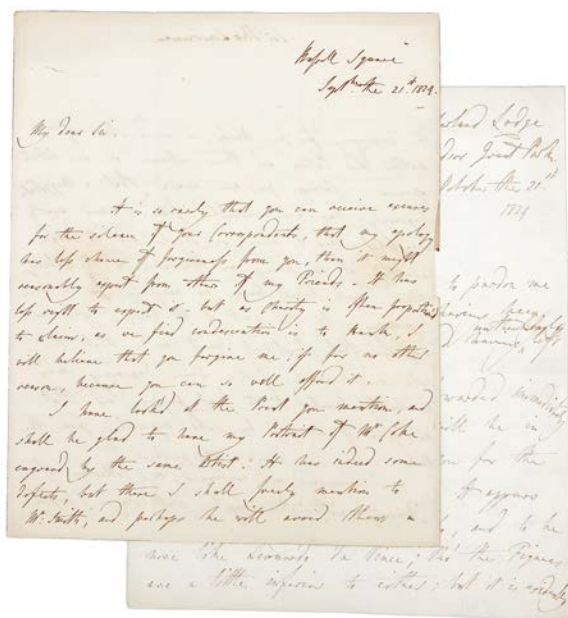 Russell Square
Septbr the 21st 1824.
My dear Sir.
It is so rarely that you can receive excuses
for the silence of your Correspondents, that my apology
has less chance of forgiveness from you, than it might
reasonably expect from others of my Friends. It has
less right to expect it. but as Charity is often proportion'd
to claims, as we find condescension is to Rank, I
will believe that you forgive me (if for no other
reason, because you can so well afford it.
I have look'd at the Print you mention, and
shall be glad to have my Portrait of Mr Coke
engraved by the same Artist: It has indeed some
defects, but these I shall freely mention to
Mr. Smith, and perhaps he will avoid them in
Lodge
Great Park
October the 21st
1824
to pardon me
having been
and
left
forwarded immediately
will be in
for the
It appears
and to be
more like Leonardo da Vinci; tho' the Figures
are a little inferior to others: but it is evidently